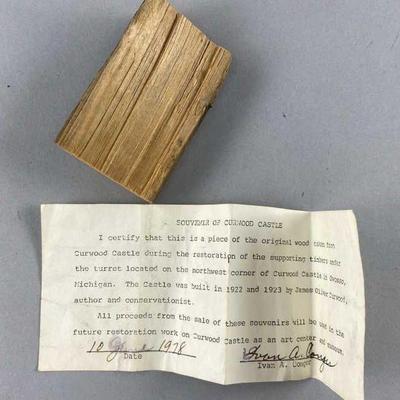 SOUVENIR OF CURWOOD CASTLE
I certify that this is a piece of the original wood taken from
Curwood Castle during the restoration of the supporting timbers under
the turret located on the northwest corner of Curwood Castle in Owosso,
Michigan. The Castle was built in 1922 and 1923 by James Oliver Curwood,
author and conservationist.
All proceeds from the sale of these souvenirs will be used in the
future restoration work on Curwood Castle as an art center and museum.
10 1978 Ivan A. Conger
Date Ivan A. Conger